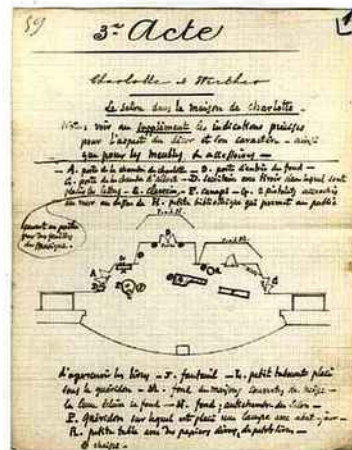 89
1
3e Acte
Charlotte & Werther
Le salon dans la maison de Charlotte.
voir au supplément les indications précises
pour l'aspect du décor et son caractère - ainsi
que pour les meubles & accessoires -
A. porte de la chambre de charlotte - B. porte d'entrée du fond -
C. porte de la chambre d'Albert - D. secrétaire avec tiroir dans lequel sont
les lettres - E. clavecin - F. canapé - G. 2 pistolets accrochés
au mur au dessus de H. petite bibliothèque qui permet au public
d'apercevoir les livres - J. fauteuil - petit tabouret placé
sous le guéridon - fond de maisons couvertes de neige -
la lune éclaire le fond - fond, antichambre du salon -
P. Guéridon sur lequel est placé une lampe avec abat-jour -
R. petite table avec des papiers divers, de petits livres -
chaise -